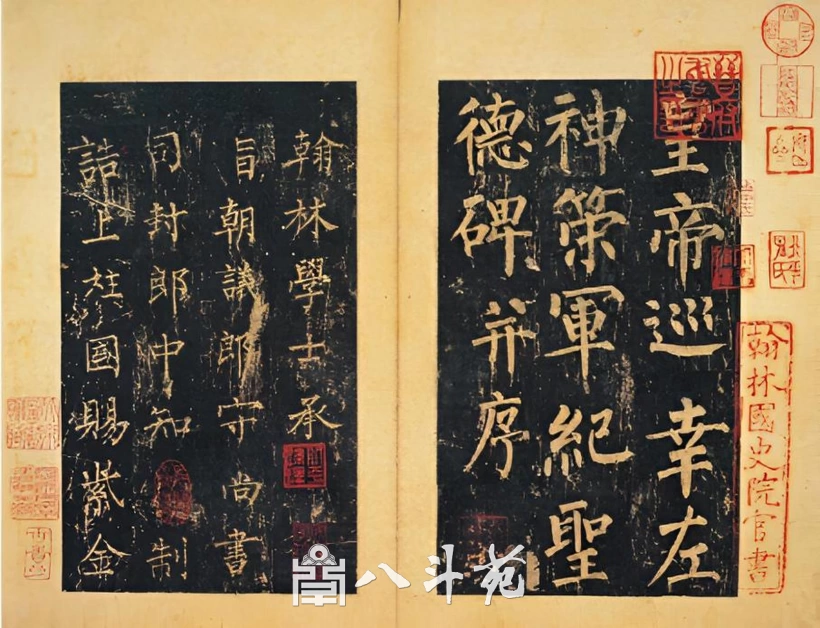 皇帝巡幸左
神策軍紀聖
德碑并序
翰林學士承
旨朝議郎守尚書
司封郎中知制
誥上柱國賜紫金
翰林國史院官書
八斗苑